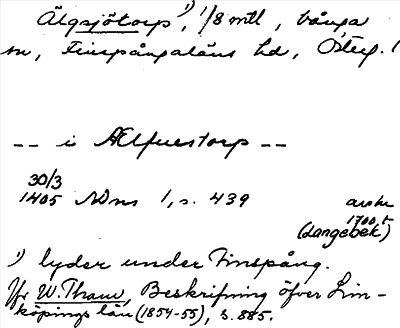 Älgsjötorp ¹), 1/8 mtl, Vånga
sn, Finspångaläns hd, Österg. l
-- i Ælfuestorp --
30/3
1405 NDns 1, s. 439 avskr
1700 t
(Langebek)
¹) lyder under Finspång.
Jfr W. Tham, Beskrifning öfver Lin-
köpings län (1854-55), s. 885.